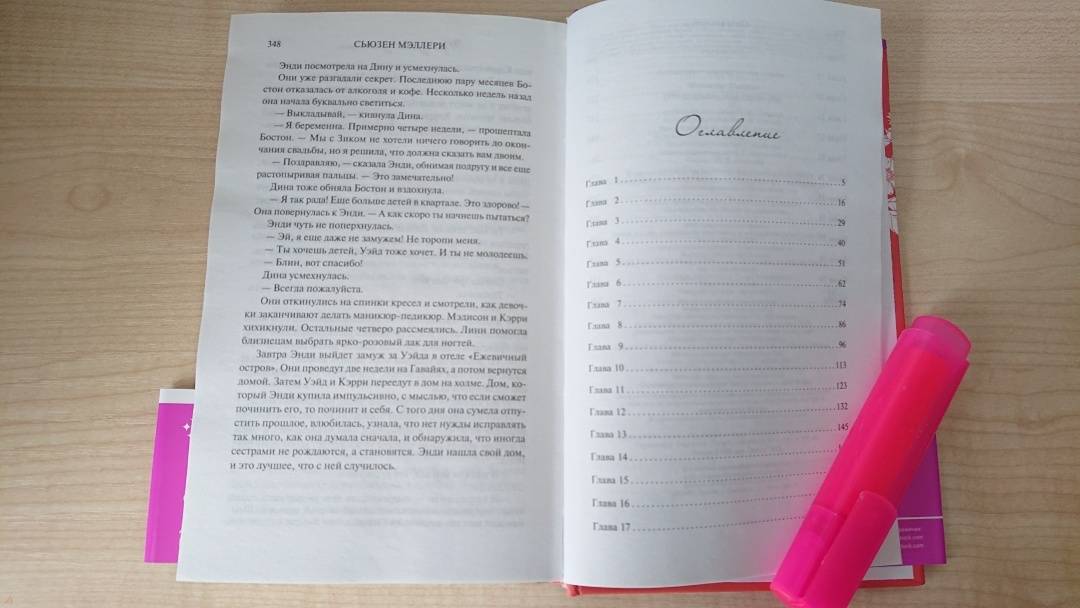 348 СЬЮЗЕН МЭЛЛЕРИ
Энди посмотрела на Дину и усмехнулась.
Они уже разгадали секрет. Последнюю пару месяцев Бо-
стон отказалась от алкоголя и кофе. Несколько недель назад
она начала буквально светиться.
— Выкладывай, — кивнула Дина.
— Я беременна. Примерно четыре недели, — прошептала
Бостон. — Мы с Зиком не хотели ничего говорить до окон-
чания свадьбы, но я решила, что должна сказать вам двоим.
— Поздравляю, — сказала Энди, обнимая подругу и все еще
растопыривая пальцы. — Это замечательно!
Дина тоже обняла Бостон и вздохнула.
— Я так рада! Еще больше детей в квартале. Это здорово! —
Она повернулась к Энди. — А как скоро ты начнешь пытаться?
Энди чуть не поперхнулась.
— Эй, я еще даже не замужем! Не торопи меня.
— Ты хочешь детей, Уэйд тоже хочет. И ты не молодеешь.
— Блин, вот спасибо!
Дина усмехнулась.
— Всегда пожалуйста.
Они откинулись на спинки кресел и смотрели, как девоч-
ки заканчивают делать маникюр-педикюр. Мэдисон и Кэрри
хихикнули. Остальные четверо рассмеялись. Линн помогла
близнецам выбрать ярко-розовый лак для ногтей.
Завтра Энди выйдет замуж за Уэйда в отеле «Ежевичный
остров». Они проведут две недели на Гавайях, а потом вернутся
домой. Затем Уэйд и Кэрри переедут в дом на холме. Дом, ко-
торый Энди купила импульсивно, с мыслью, что если сможет
починить его, то починит и себя. С того дня она сумела отпу-
стить прошлое, влюбилась, узнала, что нет нужды исправлять
так много, как она думала сначала, и обнаружила, что иногда
сестрами не рождаются, а становятся. Энди нашла свой дом,
и это лучшее, что с ней случилось.
Оглавление
Глава 1 5
Глава 2 16
Глава 3 29
Глава 4 40
Глава 5 51
Глава 6 62
Глава 7 74
Глава 8 86
Глава 9 96
Глава 10 113
Глава 11 123
Глава 12 132
Глава 13 145
Глава 14
Глава 15
Глава 16
Глава 17